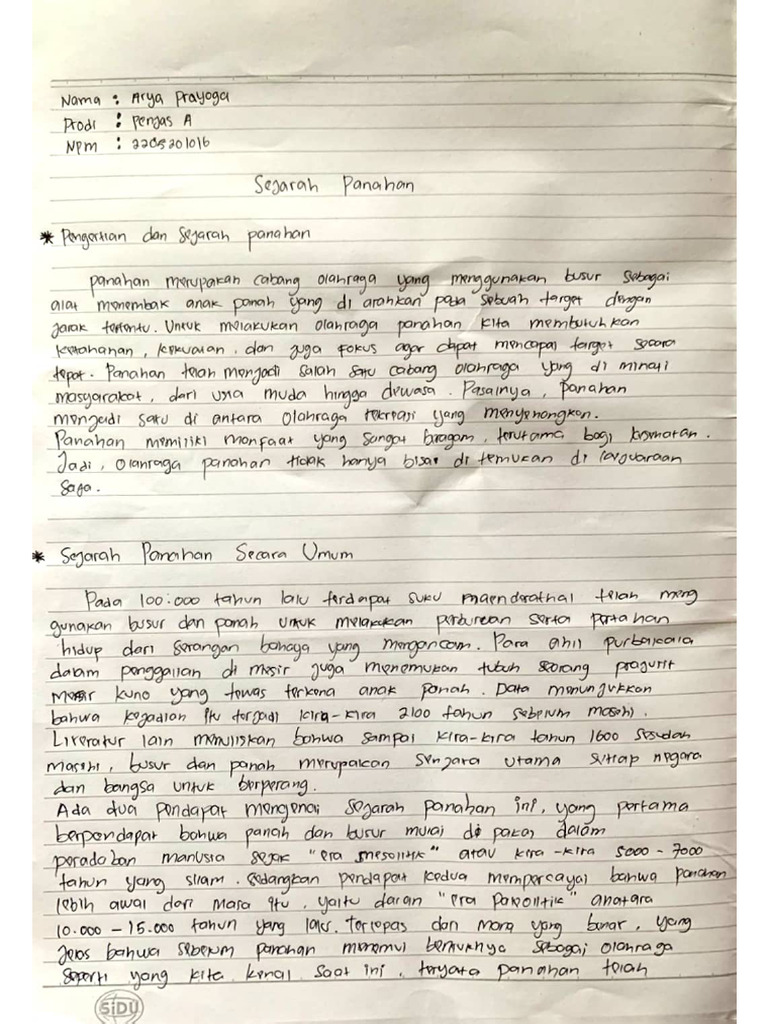 Nama : Arya Prayoga
Prodi : Penjas A
Npm : 2205201016
Sejarah Panahan
* Pengertian dan Sejarah panahan
panahan merupakan cabang olahraga yang menggunakan busur sebagai
alat menembak anak panah yang di arahkan pada sebuah target dengan
jarak tertentu. Untuk melakukan olahraga panahan kita membutuhkan
ketahanan, kekuatan, dan juga fokus agar dapat mencapai target secara
tepat. Panahan telah menjadi salah satu cabang olahraga yang di minati
masyarakat, dari usia muda hingga dewasa. Pasalnya, panahan
menjadi satu di antara olahraga rekreasi yang menyenangkan.
Panahan memiliki manfaat yang sangat bragam, terutama bagi kesehatan.
Jadi, olahraga panahan tidak hanya bisa di temukan di
saja.
* Sejarah Panahan Secara Umum
Pada 100.000 tahun lalu terdapat suku naenderathal telah meng
gunakan busur dan panah untuk melakukan perburuan serta pertahan
hidup dari serangan bahaya yang mengancam. Para ahli purbakala
dalam penggalian di mesir juga menemukan tubuh seorang prajurit
mesir kuno yang tewas terkena anak panah. Data menunjukkan
bahwa kejadian itu terjadi kira-kira 2100 tahun sebelum masehi.
Literatur lain menuliskan bahwa sampai kira-kira tahun 1600 sesudah
masehi, busur dan panah merupakan senjara utama setiap negara
dan bangsa untuk berperang.
Ada dua pendapat mengenai sejarah panahan ini, yang pertama
berpendapat bahwa panah dan busur mulai di pakai dalam
peradaban manusia sejak "era mesolitik" atau kira-kira 5000 - 7000
tahun yang silam. sedangkan pendapat kedua mempercayai bahwa panahan
lebih awal dari masa itu, yaitu dalam "era paleolitik" anatara
10.000 - 15.000 tahun yang lalu. terlepas dari mana yang benar, yang
jelas bahwa sebelum panahan menemui bentuknya sebagai olahraga
seperti yang kita kenal saat ini, teryata panahan telah
SiDU